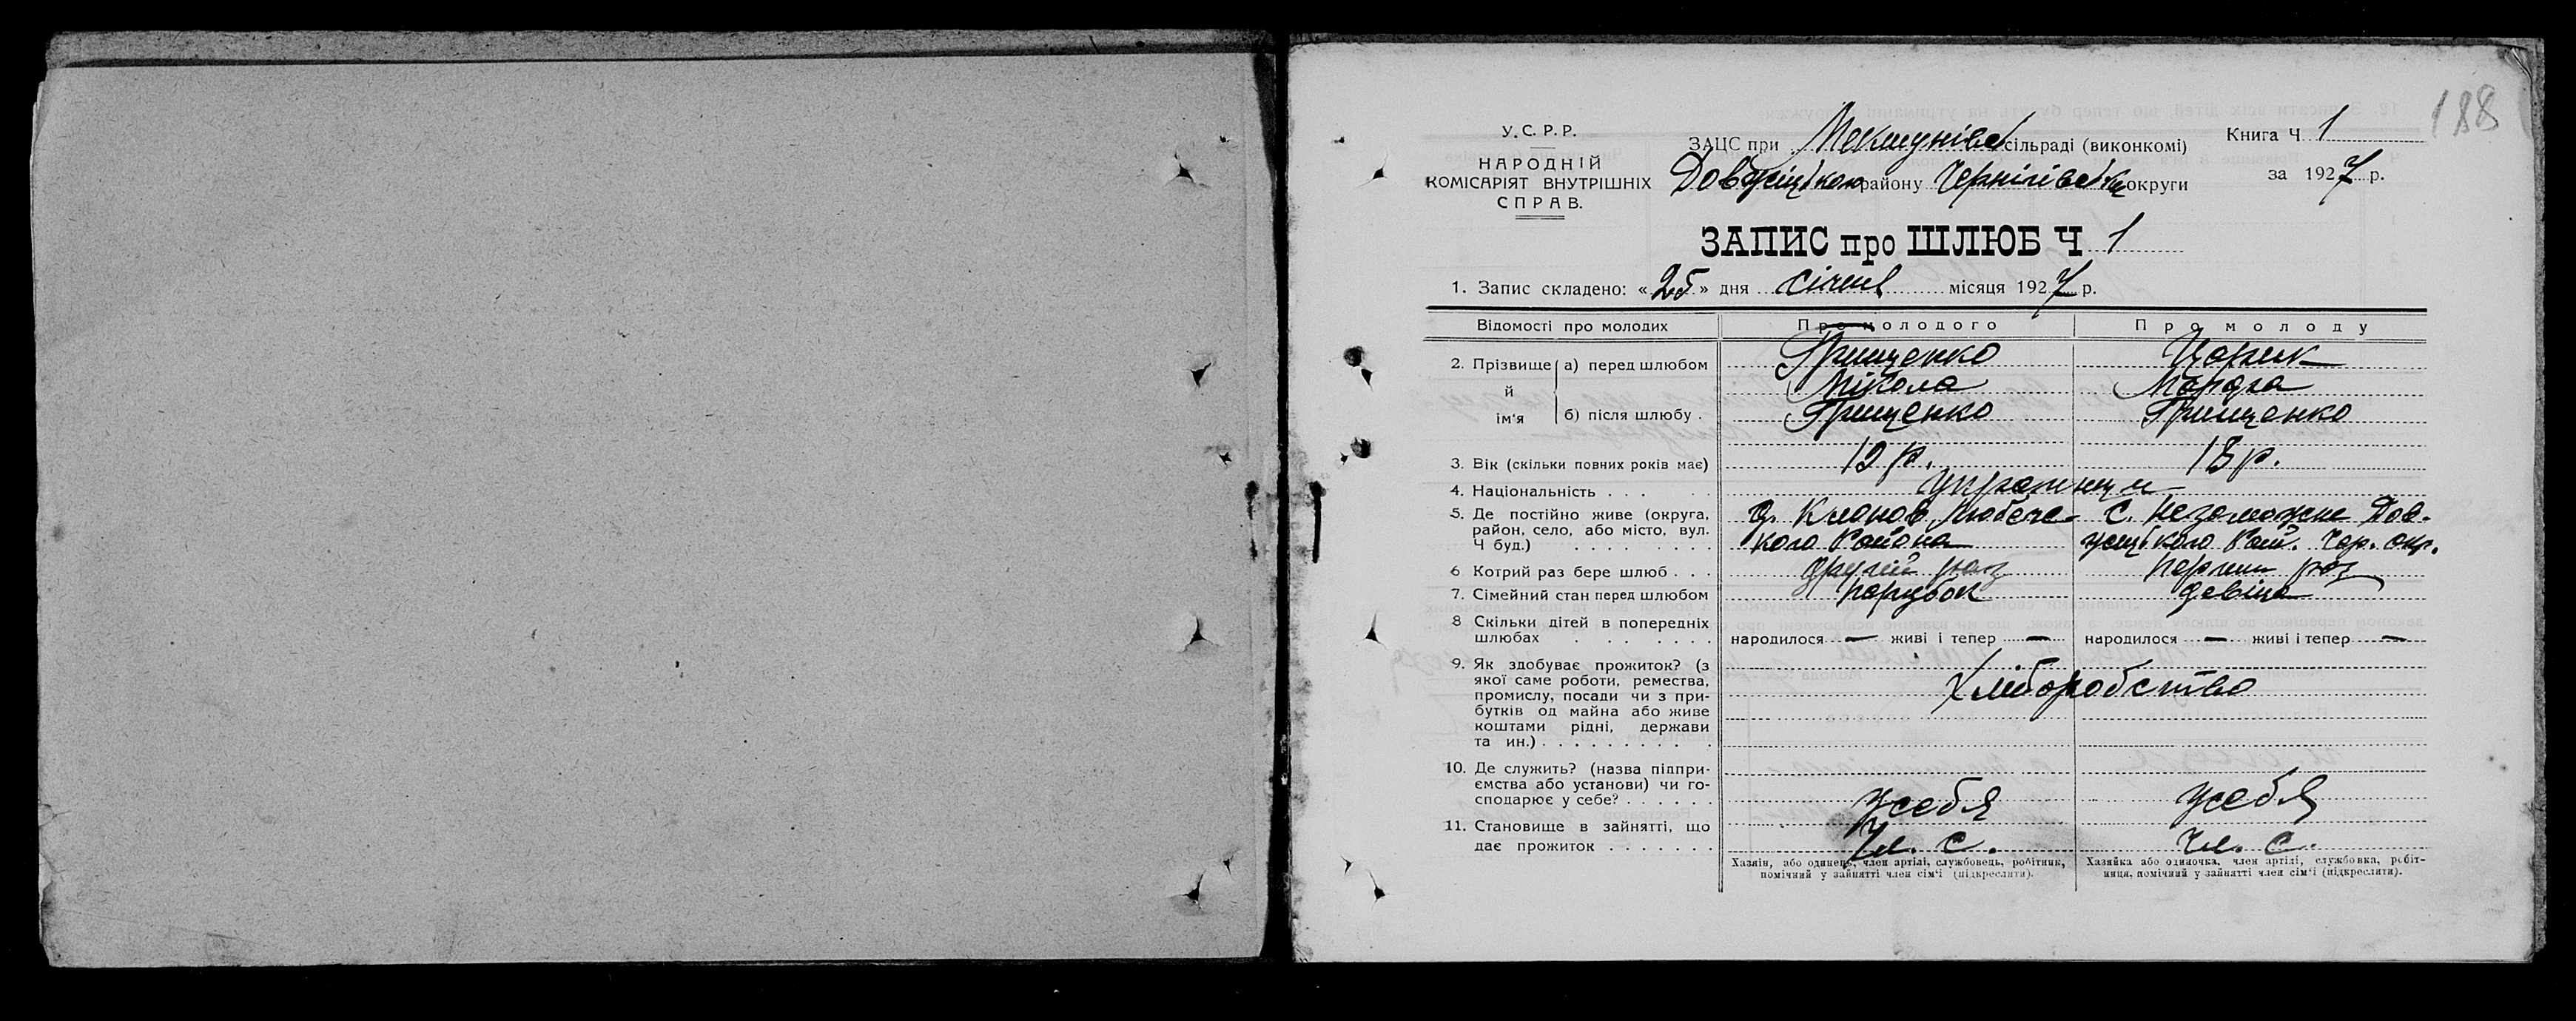 188
У.С.Р.Р.
НАРОДНІЙ
КОМІСАРІЯТ ВНУТРІШНІХ
СПРАВ.
ЗАЦС при сільраді (виконкомі)
Довжицького району Чернігівської округи
Книга Ч 1
за 1927 р.
ЗАПИС про ШЛЮБ Ч 1
1. Запис складено: «25» дня Січня місяця 1927 р.
Відомості про молодих
Про молодого
Про молоду
2. Прізвище й ім'я
а) перед шлюбом
Грищенко
Микола
Царик
б) після шлюбу .
Грищенко
Грищенко
3. Вік (скільки повних років має)
19 р.
18 р.
4. Національність . . .
українці
5. Де постійно живе (округа,
район, село, або місто, вул.
Ч буд.) . . . . . . .
Клонов Любече-
кого Района
С. Незаможне Дов-
жицького Рай. Чер. окр.
6 Котрий раз бере шлюб . . .
другий раз
перший раз
7. Сімейний стан перед шлюбом
парубок
девіца
8 Скільки дітей в попередніх
шлюбах . . . . . . .
народилося — живі і тепер —
народилося — живі і тепер —
9. Як здобуває прожиток? (з
якої саме роботи, ремества,
промислу, посади чи з при-
бутків од майна або живе
коштами рідні, держави
та ин.) . . . . . . . . .
Хліборобство
10. Де служить? (назва підпри-
ємства або установи) чи го-
сподарює у себе? . . . . . .
усебя
усебя
11. Становище в зайнятті, що
дає прожиток . . . . . . .
Чл. С.
Чл. С.
Хазяін, або одинець, член артілі, службовець, робітник,
помічний у зайнятті член сім'ї (підкреслити).
Хазяйка або одиночка, член артілі, службовка, робіт-
ниця, помічний у зайнятті член сім'ї (підкреслити).